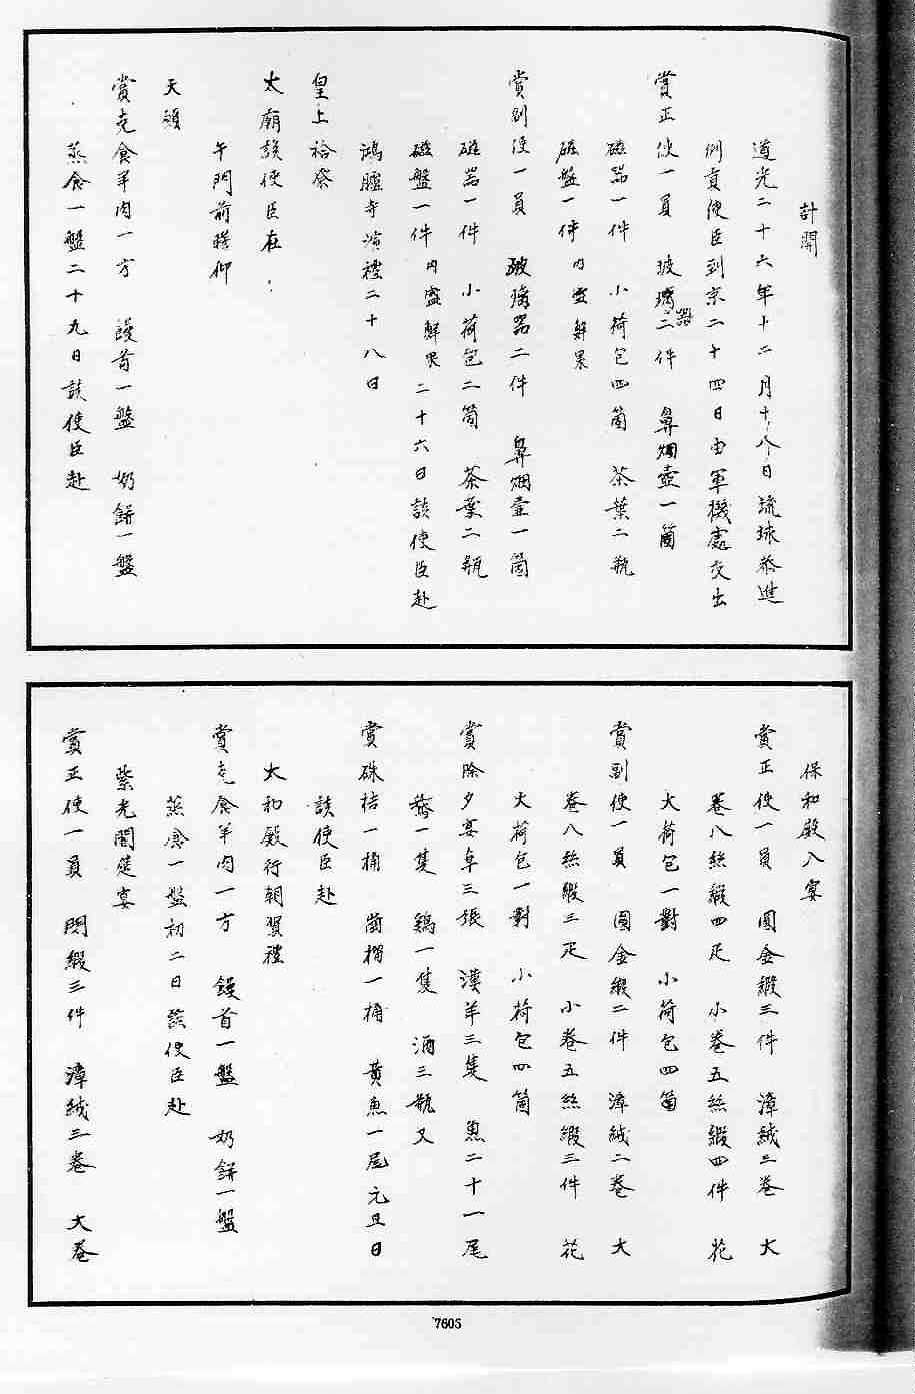 計開
道光二十六年十二月十八日琉球恭進
例貢使臣到京二十四日由軍機處交出
賞正使一員　玻璃器二件　鼻烟壺一箇
磁器一件　小荷包四箇　茶葉二瓶
磁盤一件內盛鮮果
賞副使一員　玻璃器二件　鼻烟壺一箇
磁器一件　小荷包二箇　茶葉二瓶
磁盤一件內盛鮮果二十六日該使臣赴
鴻臚寺演禮二十八日
皇上祫祭
太廟該使臣在
午門前瞻仰
天顏
賞克食羊肉一方　饅首一盤　奶餅一盤
蒸食一盤二十九日該使臣赴
保和殿入宴
賞正使一員　圓金緞三件　漳絨三卷　大
卷八絲緞四疋　小卷五絲緞四件　花
大荷包一對　小荷包四箇
賞副使一員　圓金緞二件　漳絨二卷　大
卷八絲緞三疋　小卷五絲緞三件　花
大荷包一對　小荷包四箇
賞除夕宴桌三張　漢羊三隻　魚二十一尾
鵞一隻　鷄一隻　酒三瓶又
賞硃桔一桶　蘋榅一桶　黃魚一尾元旦日
該使臣赴
太和殿行朝賀禮
賞克食羊肉一方　饅首一盤　奶餅一盤
蒸食一盤初二日該使臣赴
紫光閣筵宴
賞正使一員　閃緞三件　漳絨三卷　大卷
7605